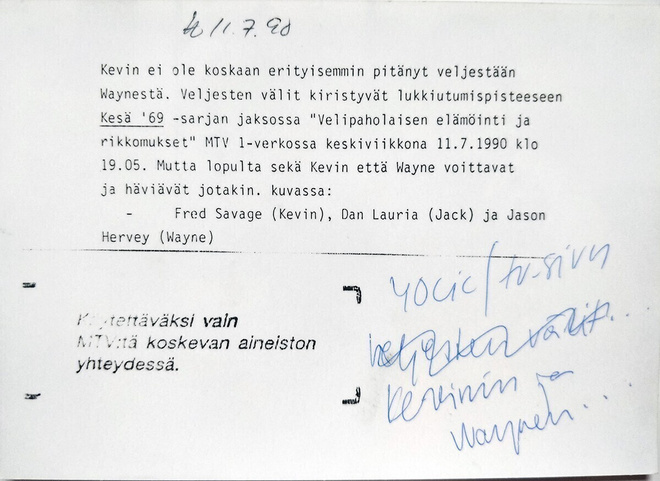 11.7.90
Kevin ei ole koskaan erityisemmin pitänyt veljestään
Waynestä. Veljesten välit kiristyvät lukkiutumispisteeseen
Kesä '69 -sarjan jaksossa "Velipaholaisen elämöinti ja
rikkomukset" MTV 1-verkossa keskiviikkona 11.7.1990 klo
19.05. Mutta lopulta sekä Kevin että Wayne voittavat
ja häviävät jotakin. kuvassa:
- Fred Savage (Kevin), Dan Lauria (Jack) ja Jason
Hervey (Wayne)
/tv-sivu
Käytettäväksi vain
MTV:tä koskevan aineiston
yhteydessä.
veljesten välit...
Kevinin ja
Waynen...